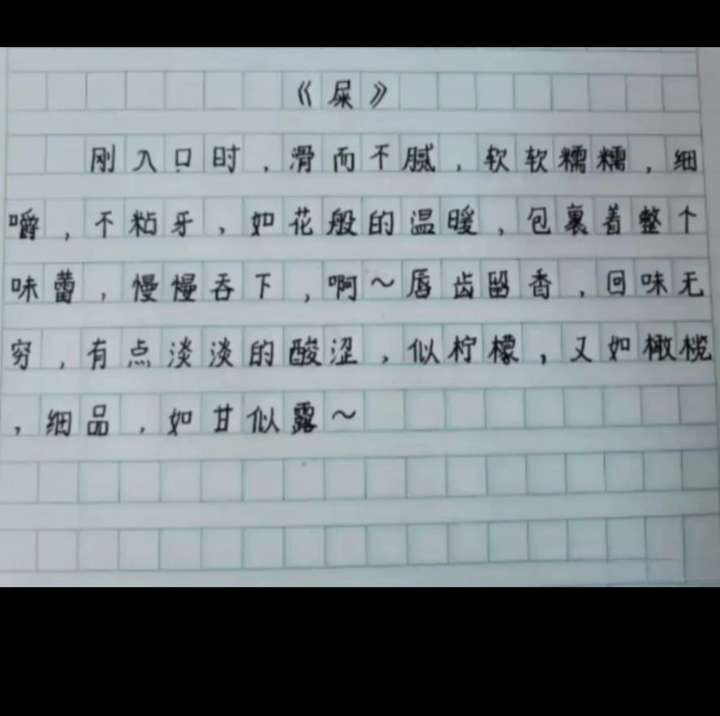 《屎》
刚入口时，滑而不腻，软软糯糯，细
嚼，不粘牙，如花般的温暖，包裹着整个
味蕾，慢慢吞下，啊～唇齿留香，回味无
穷，有点淡淡的酸涩，似柠檬，又如橄榄
，细品，如甘似露～